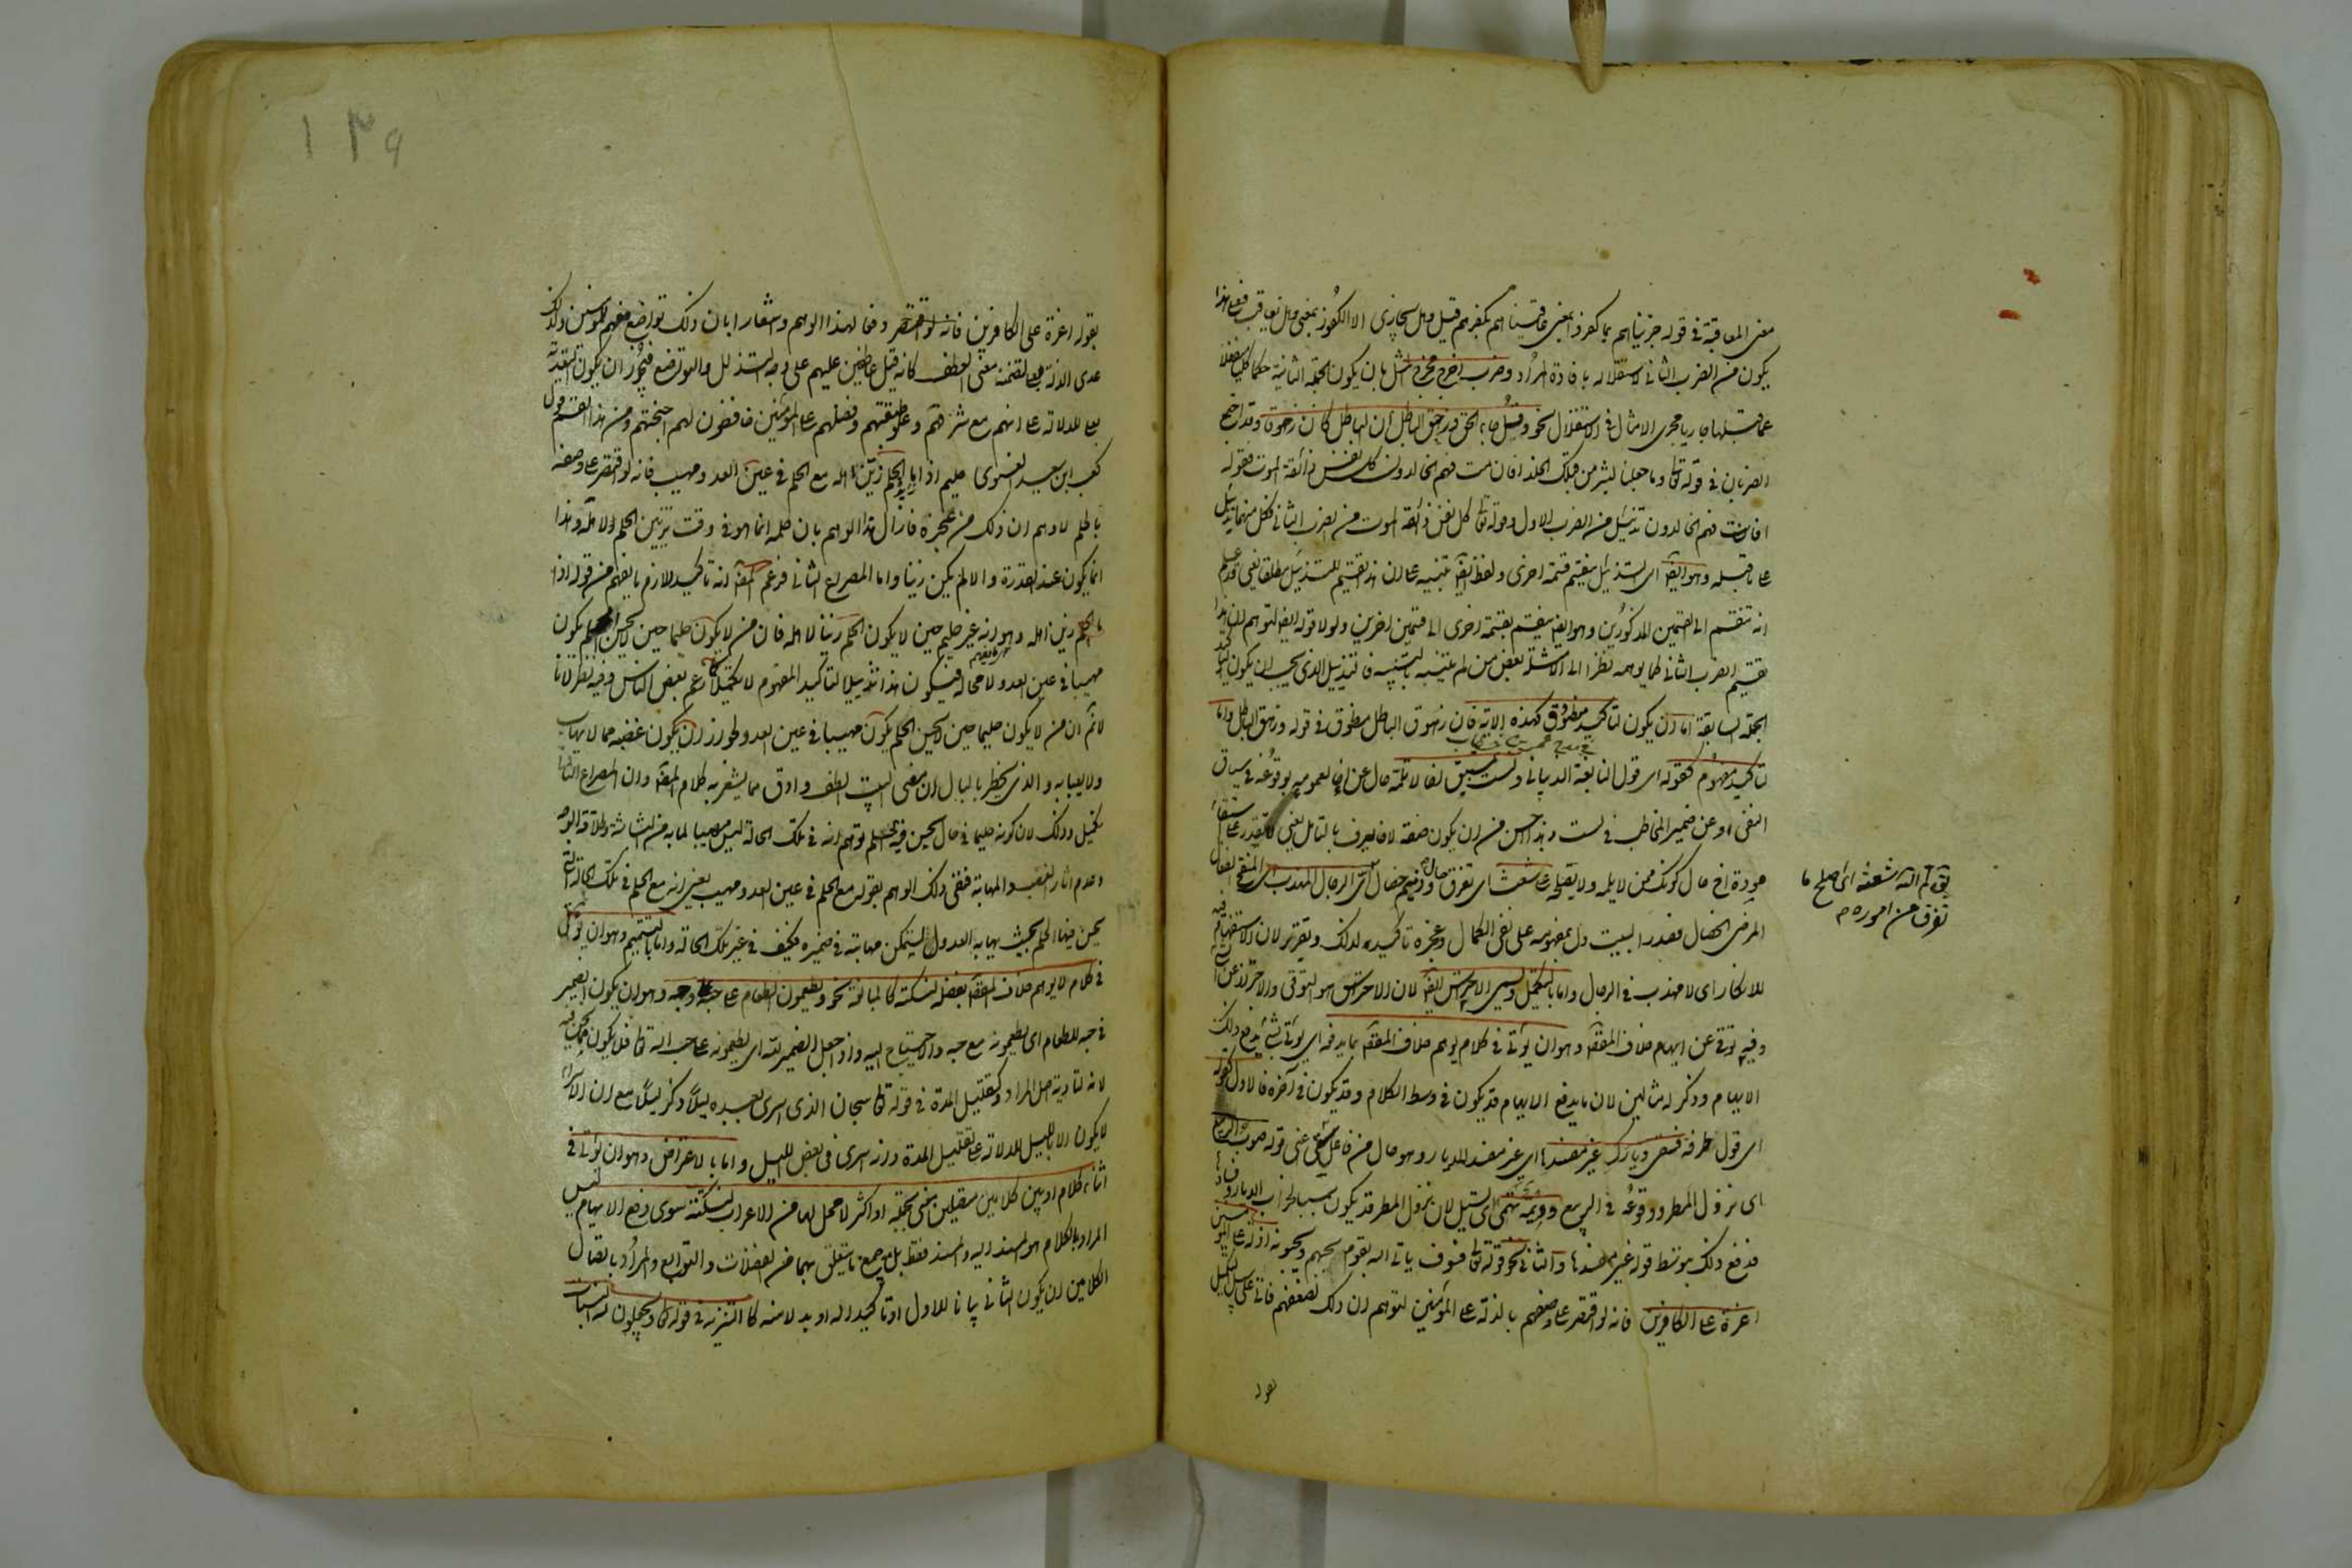 معنى المعاقبة في قوله جزيناهم بما كفروا بمعنى عاقبناهم بكفرهم قيل وهل نجازى الا الكفور بمعنى وهل نعاقب فعلى هذا
يكون من الضرب الثاني لاستقلاله بافادة المراد وضرب اخرج مخرج المثل بان يكون الجملة الثانية حكما كليا منفصلا
عما قبلها جاريا مجرى الامثال في الاستقلال نحو وقل جاء الحق وزهق الباطل ان الباطل كان زهوقا وقد اجتمع
الضربان في قوله تعالى وما جعلنا لبشر من قبلك الخلد افان مت فهم الخالدون كل نفس ذائقة الموت فقوله
افان مت فهم الخالدون تذييل من الضرب الاول وقوله تعالى كل نفس ذائقة الموت من الضرب الثاني فكل منهما تذييل
على ما قبله وهو ايضا اى التذييل ينقسم قسمة اخرى ولفظ ايضا تنبيه على ان هذا تقسيم للتذييل مطلقا يعنى قد علم
انه تنقسم الى القسمين المذكورين وهو ايضا ينقسم بقسمة اخرى الى قسمين اخرين ولولا قوله ايضا لتوهم ان هذا
تقسيم الضرب الثاني كما يوهمه نظرا الى الامثلة بعض من لم يتنبه بالتنبيه فالتذييل الذى يجب ان يكون لتاكيد
الجملة السابقة اما ان يكون لتاكيد منطوق كهذه الاية فان زهوق الباطل منطوق في قوله وزهق الباطل واما
تاكيد مفهوم كقوله اى قول النابغة الذبياني ولست بمستبق اخا لا تلمه حال عن اخا لعمومه بوقوعه في سياق
النفى او عن ضمير المخاطب في لست وهذا احسن من ان يكون صفة لاخا يعرف بالتامل يعنى لا تقدر على استبقاء
مودة اخ حال كونك ممن لا يلمه ولا يصلحه على شعث اى تفرق وذميم خصال اى الرجال المهذب اى المنقح الفعال
المرضى الخصال فصدر البيت دل بمفهومه على نفى الكمال وعجزه تاكيد لذلك وتقرير لان الاستفهام فيه
للانكار اى لا مهذب في الرجال واما بالتكميل ويسمى الاحتراس ايضا لان الاحتراس هو التوقى والاحتراز عن الشئ
وفيه توقى عن ايهام خلاف المقصود وهو ان يؤتى في كلام يوهم خلاف المقصود بما يدفعه اى يؤتى بشئ يدفع ذلك
الايهام وذكر له مثالين لان ما يدفع الايهام قد يكون في وسط الكلام وقد يكون في آخره فالاول كقوله
اى قول طرفة فسقى ديارك غير مفسدها اى غير مفسد للديار وهو حال من فاعل سقى اعنى قوله صوب الربيع
اى نزول المطر ووقوعه في الربيع وديمة تهمى اى تسيل لان نزول المطر قد يكون سببا لخراب الديار وفسادها
فدفع ذلك بتوسط قوله غير مفسدها والثاني نحو قوله تعالى فسوف ياتى الله بقوم يحبهم ويحبونه اذلة على المؤمنين
اعزة على الكافرين فانه لو اقتصر على وصفهم بالذلة على المؤمنين لتوهم ان ذلك لضعفهم فاتى على سبيل التكميل
بقوله
يق لم الله شعثه اى اصلح ما
تفرق من اموره
١٣٩
بقوله اعزة على الكافرين فانه لو اقتصر دفعا لهذا الوهم واشعارا بان ذلك تواضع منهم للمؤمنين ولذلك
عدى الذل بعلى لتضمنه معنى العطف كانه قيل عاطفين عليهم على وجه التذلل والتواضع ويجوز ان يكون التعدية
بعلى للدلالة على انهم مع شرفهم وعلو طبقتهم وفضلهم على المؤمنين خافضون لهم اجنحتهم ومن هذا القسم قول
كعب ابن سعيد الغنوى حليم اذا ما الحلم زين اهله مع الحلم في عين العدو مهيب فانه لو اقتصر على وصفه
بالحلم لاوهم ان ذلك من عجزه فازال هذا الوهم بان حلمه انما هو في وقت تزيين الحلم لاهله وهذا
انما يكون عند القدرة والا لم يكن زينا واما المصراع الثاني فزعم المص انه تاكيد للازم ما يفهم من قوله اذا
ما الحلم زين اهله وهو انه غير حليم حين لا يكون الحلم زينا لاهله فان من لا يكون حليما حين لا يحسن الحلم يكون
مهيبا في عين العدو لا محالة فيكون هذا تذييلا لتاكيد المفهوم لا تكميلا كما زعم بعض الناس وفيه نظر لانا
لا نم ان من لا يكون حليما حين لا يحسن الحلم يكون مهيبا في عين العدو لجواز ان يكون غضبه مما لا يهاب
ولا يعبا به والذى يخطر بالبال ان معنى البيت الطف وادق مما يشعر به كلام المص وان المصراع الثاني
تكميل وذلك لان كونه حليما في حال يحسن فيه الحلم يوهم انه في تلك الحالة ليس مهيبا لما به من البشاشة وطلاقة الوجه
وعدم اثار الغضب والمهابة فنفى ذلك الوهم بقوله مع الحلم في عين العدو مهيب يعنى انه مع الحلم في تلك الحالة التى
يحسن فيها الحلم بحيث يهابه العدو لتمكن مهابته في ضميره فكيف في غير تلك الحالة واما بالتتميم وهو ان يؤتى
في كلام لا يوهم خلاف المقصود بفضلة لنكتة كالمبالغة نحو ويطعمون الطعام على حبه في وجه وهو ان يكون الضمير
في حبه للطعام اى يطعمونه مع حبه والاحتياج اليه واذا جعل الضمير لله اى يطعمونه على حب الله تعالى فلا يكون مما نحن فيه
لانه لتادية اصل المراد وكتقليل المدة في قوله تعالى سبحان الذى اسرى بعبده ليلا وذكر ليلا مع ان الاسراء
لا يكون الا بالليل للدلالة على تقليل المدة وانه اسرى في بعض الليل واما بالاعتراض وهو ان يؤتى في
اثناء كلام او بين كلامين متصلين معنى بجملة او اكثر لا محل لها من الاعراب لنكتة سوى دفع الايهام ليس
المراد بالكلام هو المسند اليه والمسند فقط بل مع جميع ما يتعلق بهما من الفضلات والتوابع والمراد باتصال
الكلامين ان يكون الثاني بيانا للاول او تاكيدا له او بدلا منه كالتنزيه في قوله تعالى ويجعلون لله البنات